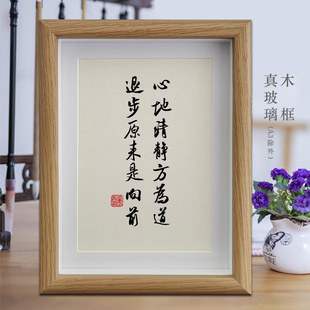 心地清静方為道
退步原来是向前
木框
真玻璃(A3除外)